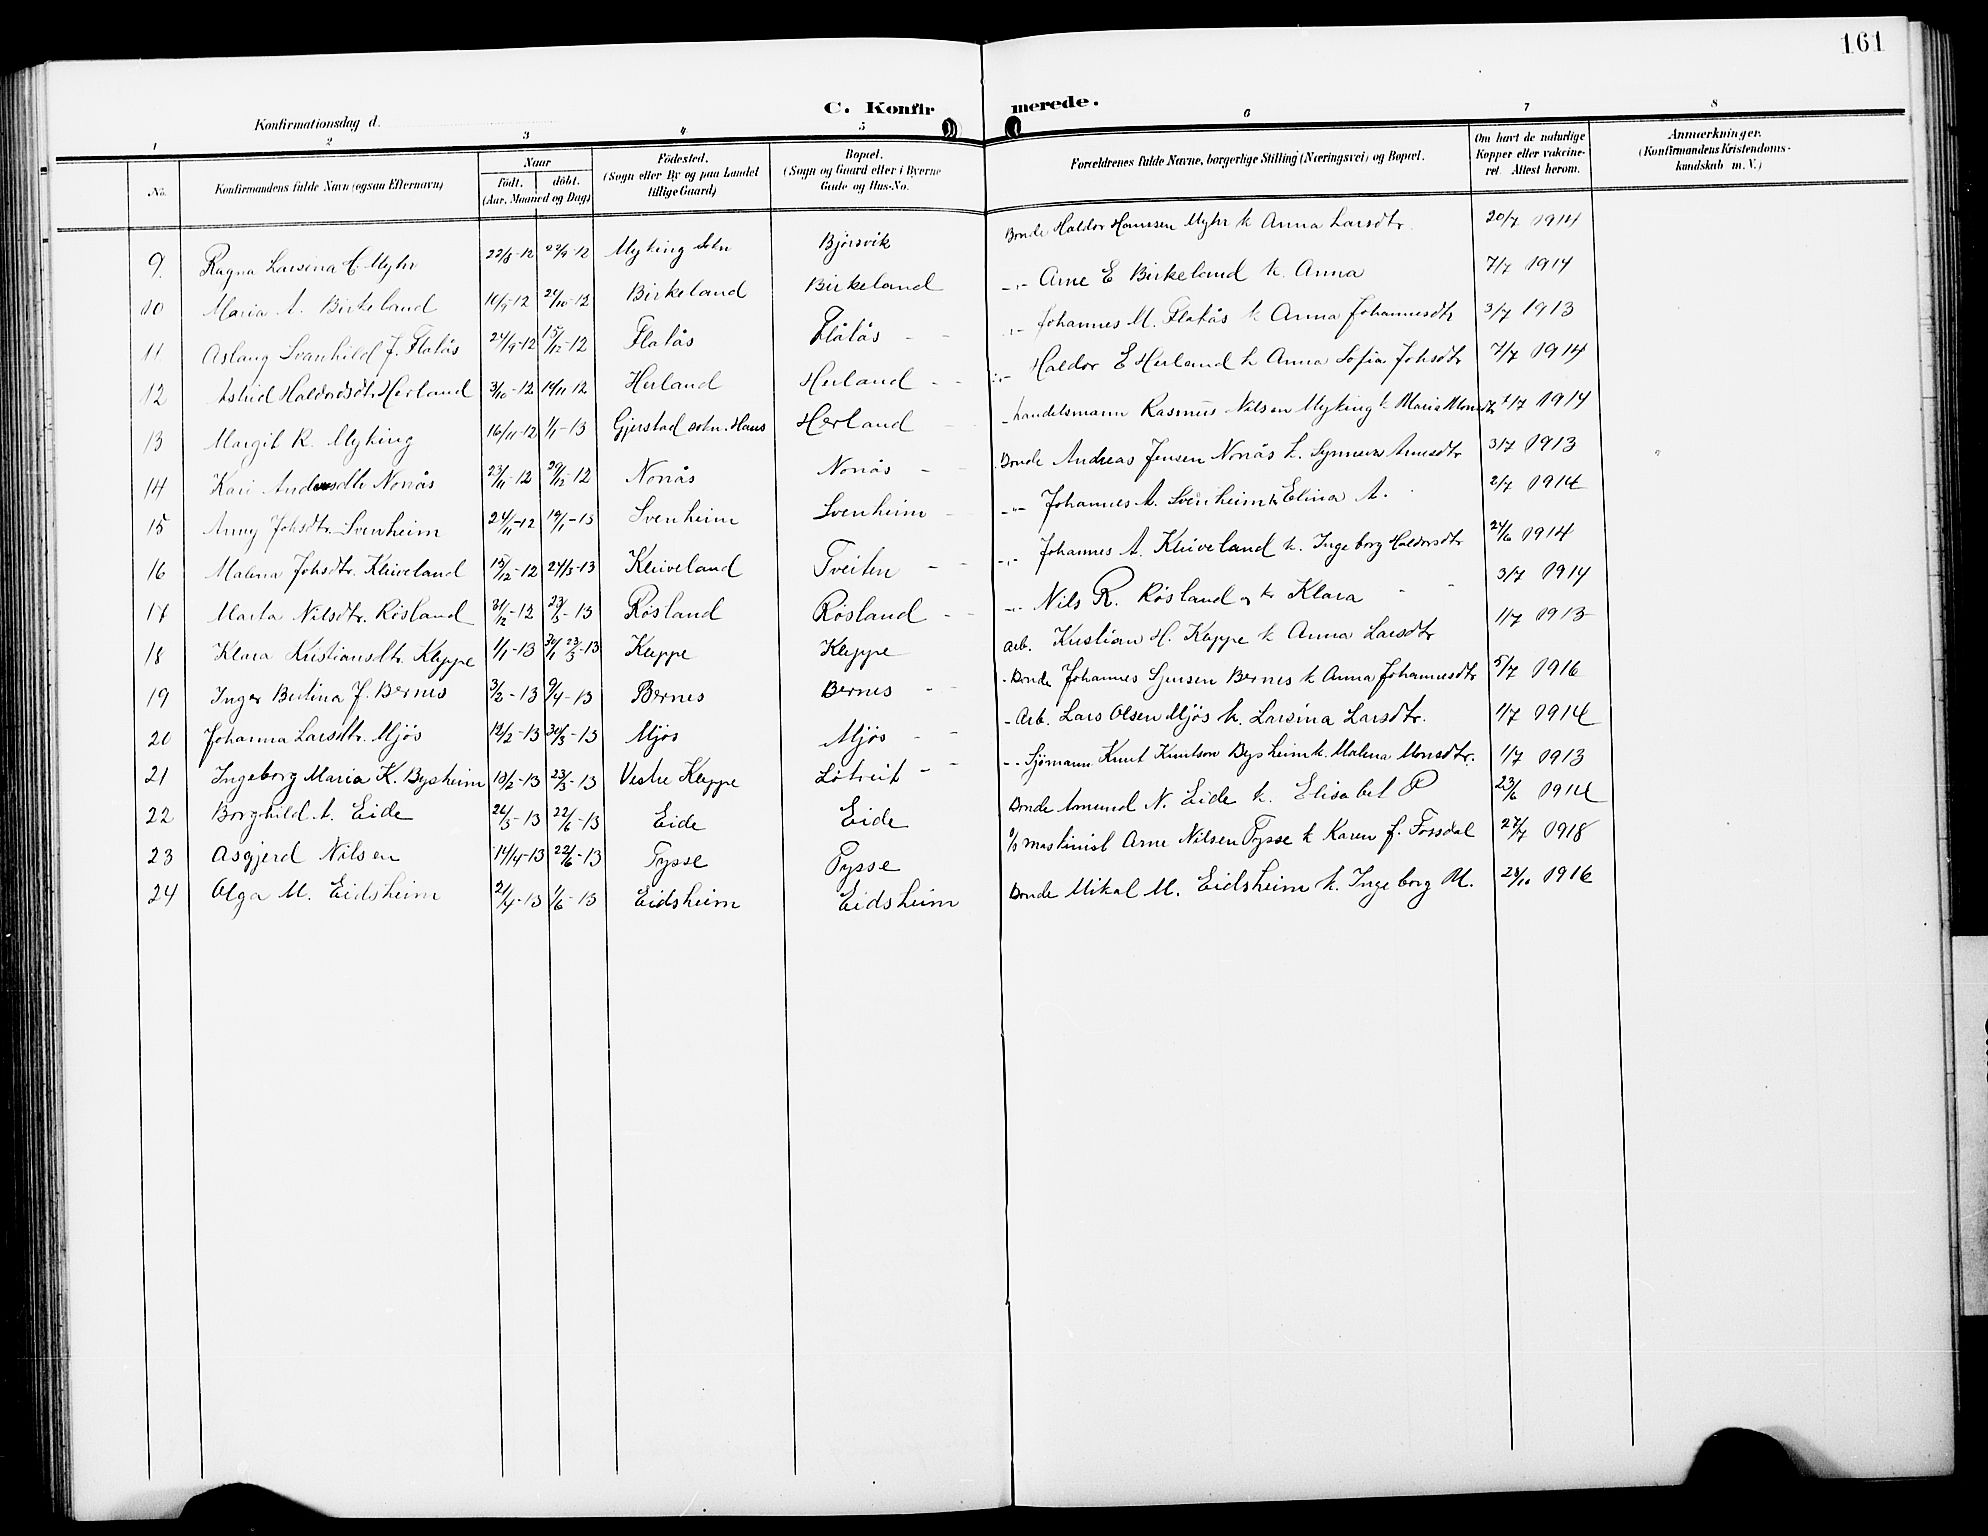 161
C. Konfirmerede.
Konfirmationsdag d.
1 2 3 4 5 6 7 8
No. Konfirmandens fulde Navn (ogsaa Efternavn) Naar født. døbt. (Aar, Maaned og Dag) Fødested. (Sogn eller By og paa Landet tillige Gaard) Bopæl. (Sogn og Gaard eller i Byerne Gade og Hus-No. Forældrenes fulde Navne, borgerlige Stilling (Næringsvei) og Bopæl. Om havt de naturlige Kopper eller vakcineret. Attest herom. Anmærkninger. (Konfirmandens Kristendomskundskab m. V.)
9. Ragna Larsina H. Myhr 22/8-12 22/9-12 Myking Bjørsvik Bonde Haldor Hanssen Myhr k Anna Larsdtr. 20/7 1914
10 Maria A. Birkeland 10/9-12 20/10-12 Birkeland Birkeland -"- Arne E Birkeland k. Anna 7/7 1914
11 Aslaug Svanhild J. Flatås 24/9-12 15/12-12 Flatås Flåtås - - -"- Johannes M. Flatås k Anna Johannesdtr 3/7 1913
12 Astrid Haldorsdtr Herland 3/10-12 14/11-12 Herland Herland - - -"- Haldor E Herland k Anna Sofia Johsdtr 7/7 1914
13 Margit R. Myking 16/11-12 1/1-13 Gjerstad Herland - Handelsmann Rasmus Nilsen Myking k Maria Monsdtr 2/7 1914
14 Kari Andersdtr Nonås 23/11-12 29/12-12 Nonås Nonås - Bonde Andreas Jensen Nonås k. Synneva Arnesdtr 3/7 1913
15 Anny Johsdtr. Svenheim 24/11-12 19/1-13 Svenheim Svenheim - -"- Johannes A. Svenheim k Elina A. 2/7 1914
16 Malena Johsdtr. Kleiveland 15/12-12 24/3-13 Kleiveland Tveiten - - -"- Johannes A. Kleiveland k. Ingeborg Haldorsdtr 24/6 1914
17 Marta Nilsdtr. Risland 31/12-12 23/3-13 Røsland Røsland - - -"- Nils R. Røsland k Klara 3/7 1914
18 Klara Kristiansdtr. Kleppe 1/1-13 23/3-13 Kleppe Kleppe Arb. Kristian H. Kleppe k Anna Larsdtr 1/7 1913
19 Inger Bertina J. Bernes 3/2-13 9/4-13 Bernes Bernes - - - Bonde Johannes Bernes k Anna Johannesdtr 5/7 1916
20 Johanna Larsdtr. Mjøs 12/2-13 30/3-13 Mjøs Mjøs - - - Arb. Lars Olsen Mjøs k. Larsina Larsdtr. 1/7 1914
21 Ingeborg Maria K. Bysheim 13/2-13 23/3-13 Vestre Kleppe Løtveit - - - - Sjømann Knut Knutson Bysheim k. Malena Monsdtr. 1/7 1913
22 Borghild A. Eide 26/3-13 22/6-13 Eide Eide Bonde Amund N. Eide k. Elisabet P 23/6 1914
23 Asgjerd Nilsen 14/4-13 22/6-13 Tysse Tysse Maskinist Arne Nilsen Tysse k Karen J. Fossdal 27/7 1918
24 Olga M. Eidsheim 21/4-13 1/6-13 Eidsheim Eidsheim Bonde Mikal M. Eidsheim k. Ingeborg M. 28/10 1916